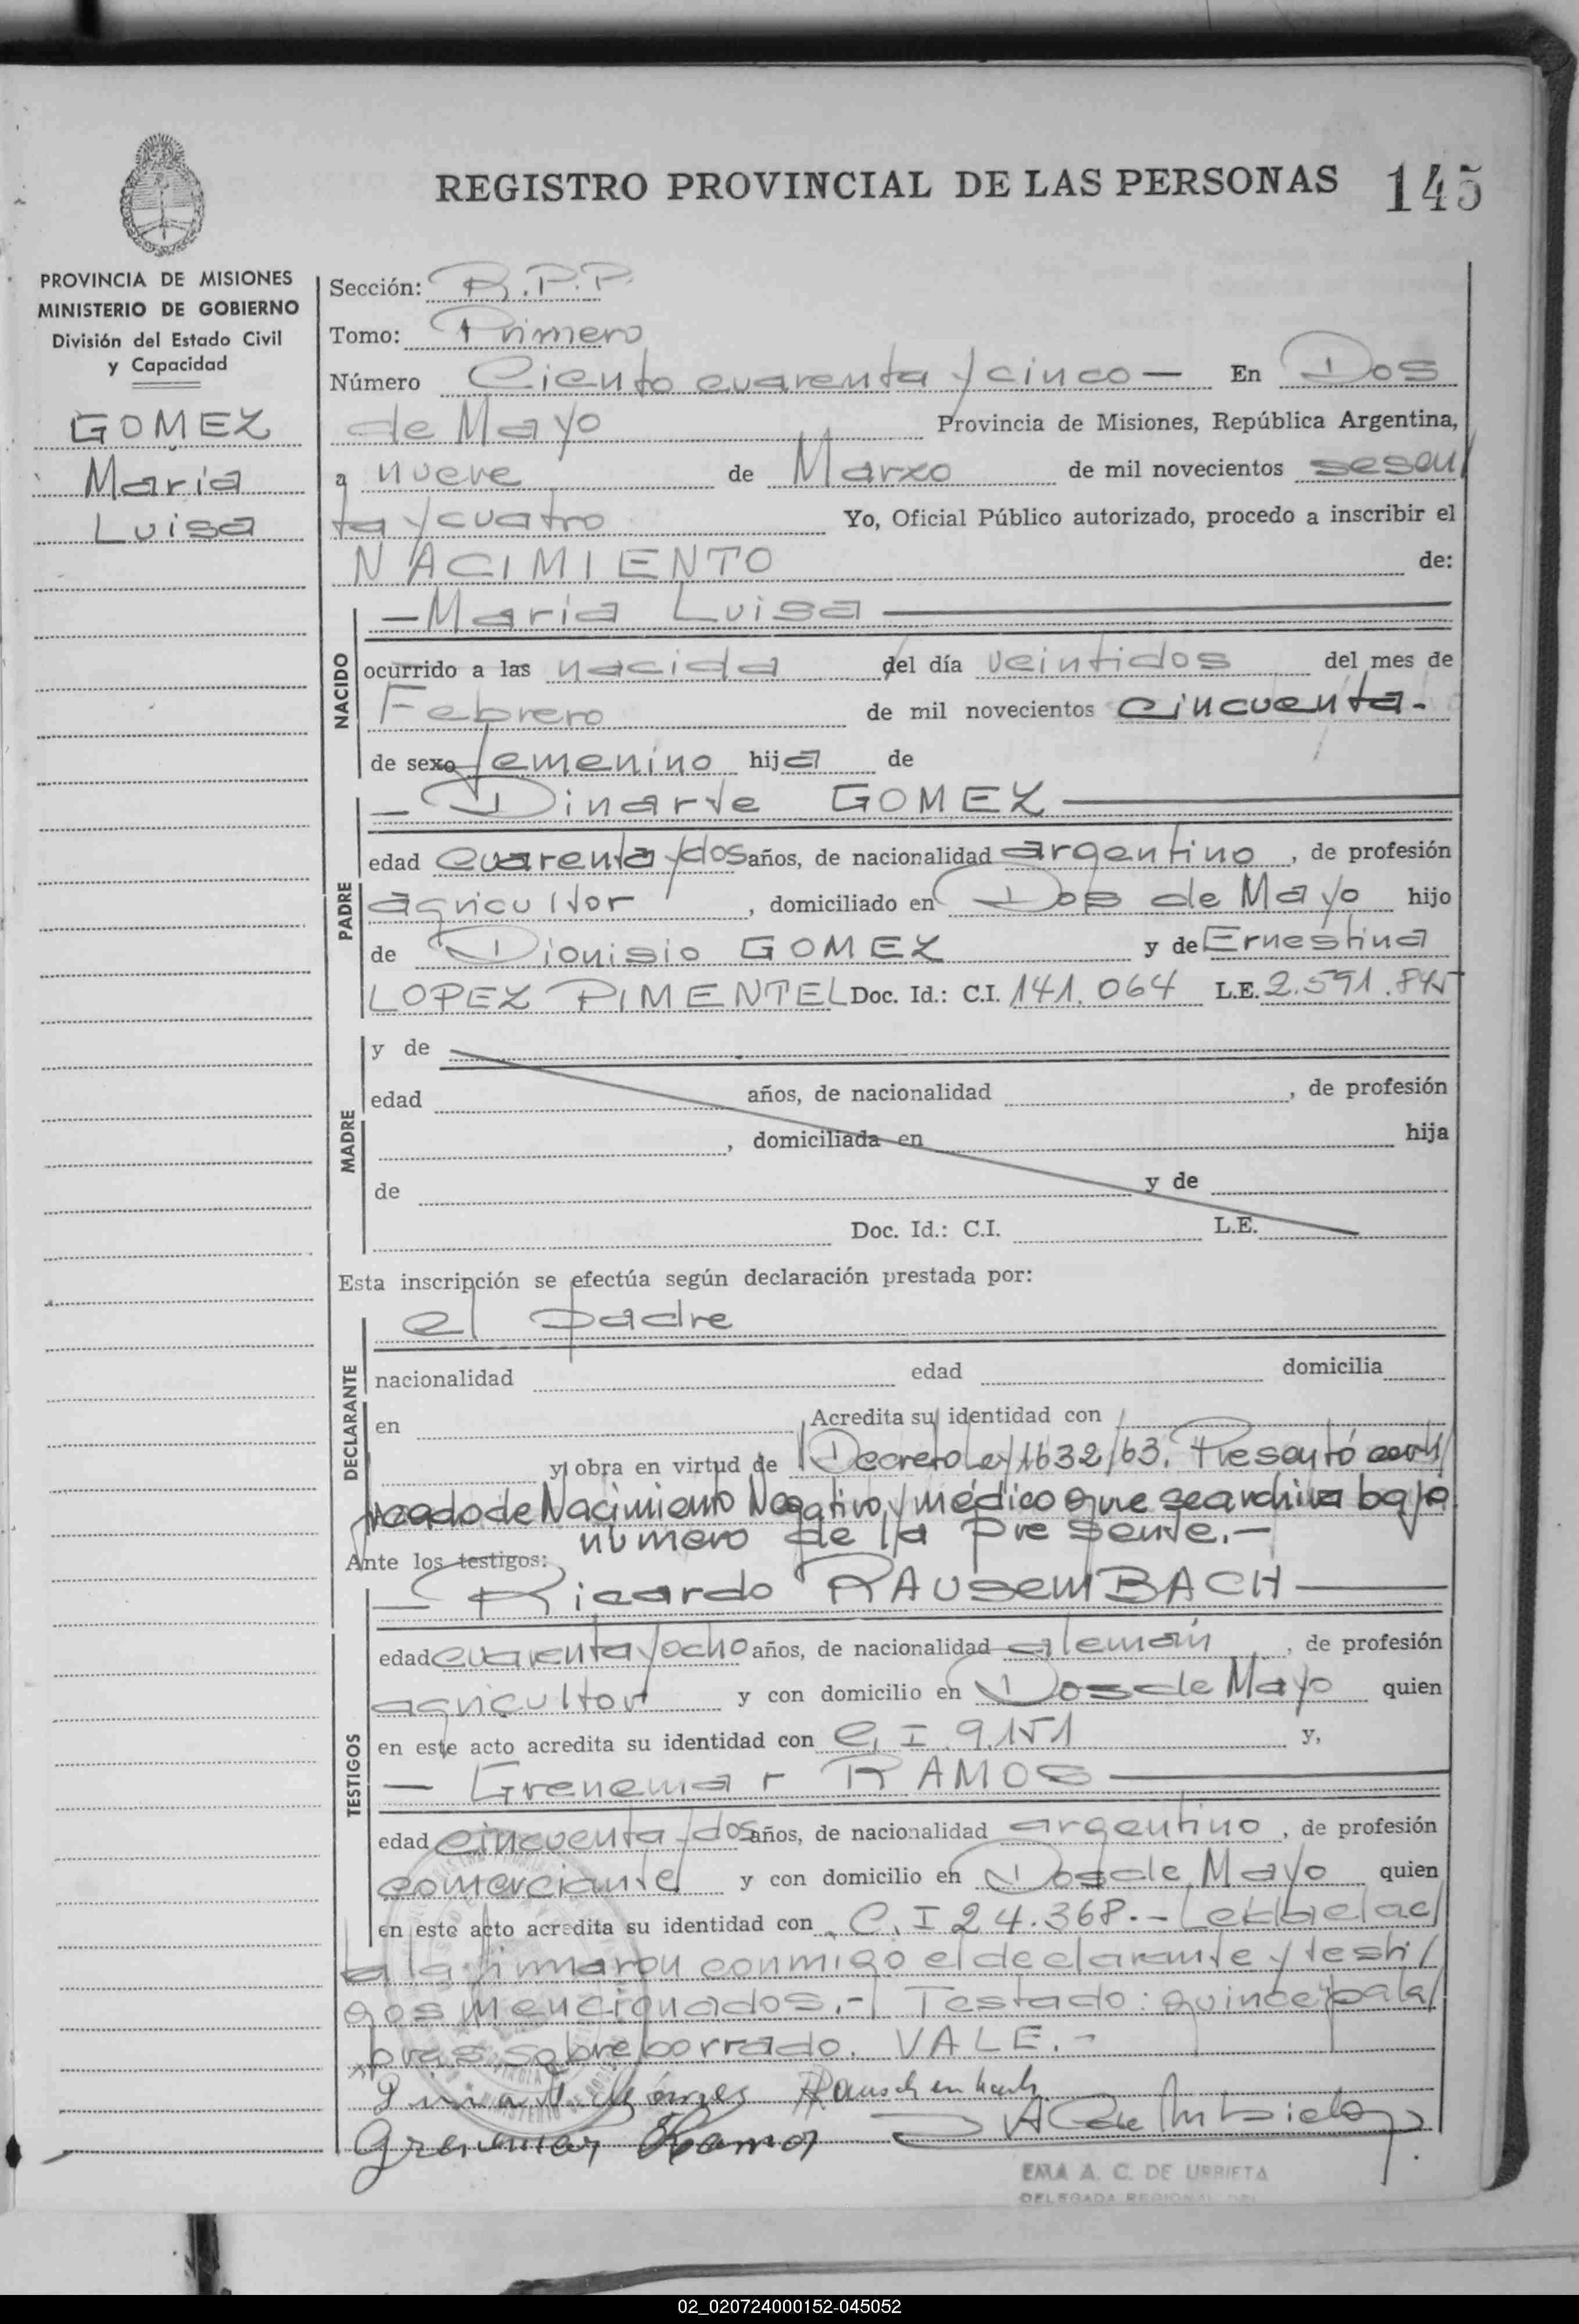 REGISTRO PROVINCIAL DE LAS PERSONAS 145
PROVINCIA DE MISIONES
MINISTERIO DE GOBIERNO
División del Estado Civil
y Capacidad
GOMEZ
María
Luisa
Sección: R.P.P.
Tomo: Primero
Número Ciento cuarenta y cinco — En Dos
de Mayo Provincia de Misiones, República Argentina,
a nueve de Marzo de mil novecientos sesen/
ta y cuatro Yo, Oficial Público autorizado, procedo a inscribir el
NACIMIENTO de:
NACIDO
— María Luisa —
ocurrido a las nacida del día veintidos del mes de
Febrero de mil novecientos cincuenta.-
de sexo femenino hija de
PADRE
— Dinarte GOMEZ —
edad cuarenta y dos años, de nacionalidad argentino, de profesión
agricultor, domiciliado en Dos de Mayo hijo
de Dionisio GOMEZ y de Ernestina
LOPEZ PIMENTEL Doc. Id.: C.I. 141.064 L.E. 2.591.845
MADRE
y de
edad años, de nacionalidad , de profesión
, domiciliada en hija
de y de
Doc. Id.: C.I. L.E.
Esta inscripción se efectúa según declaración prestada por:
DECLARANTE
el padre
nacionalidad edad domicilia
en Acredita su identidad con
y obra en virtud de Decreto Ley 1632/63. Presentó certi/
ficado de Nacimiento Negativo y médico que se archiva bajo
número de la presente.-
Ante los testigos:
TESTIGOS
— Ricardo RAUSEMBACH —
edad cuarenta y ocho años, de nacionalidad alemán, de profesión
agricultor y con domicilio en Dos de Mayo quien
en este acto acredita su identidad con C.I. 9.151 y,
— Grenemar RAMOS —
edad cincuenta y dos años, de nacionalidad argentino, de profesión
comerciante y con domicilio en Dos de Mayo quien
en este acto acredita su identidad con C.I 24.368.- Leída el ac/
ta la firmaron conmigo el declarante y testi/
gos mencionados.- Testado: quince pala/
bras sobreborrado. VALE.-
Dinarte Gómes Rauschenbach
Grenemar Ramos
EMA A. C. DE URBIETA
DELEGADA REGIONAL DEL
02_020724000152-045052